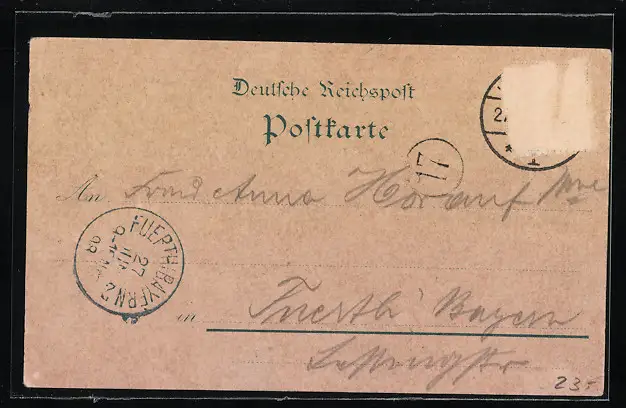 Deutsche Reichspost
Postkarte
17
An Anna Horauf
FUERTH(BAYERN) 2
27
in Fuerth Bayern
Lessingstr
235